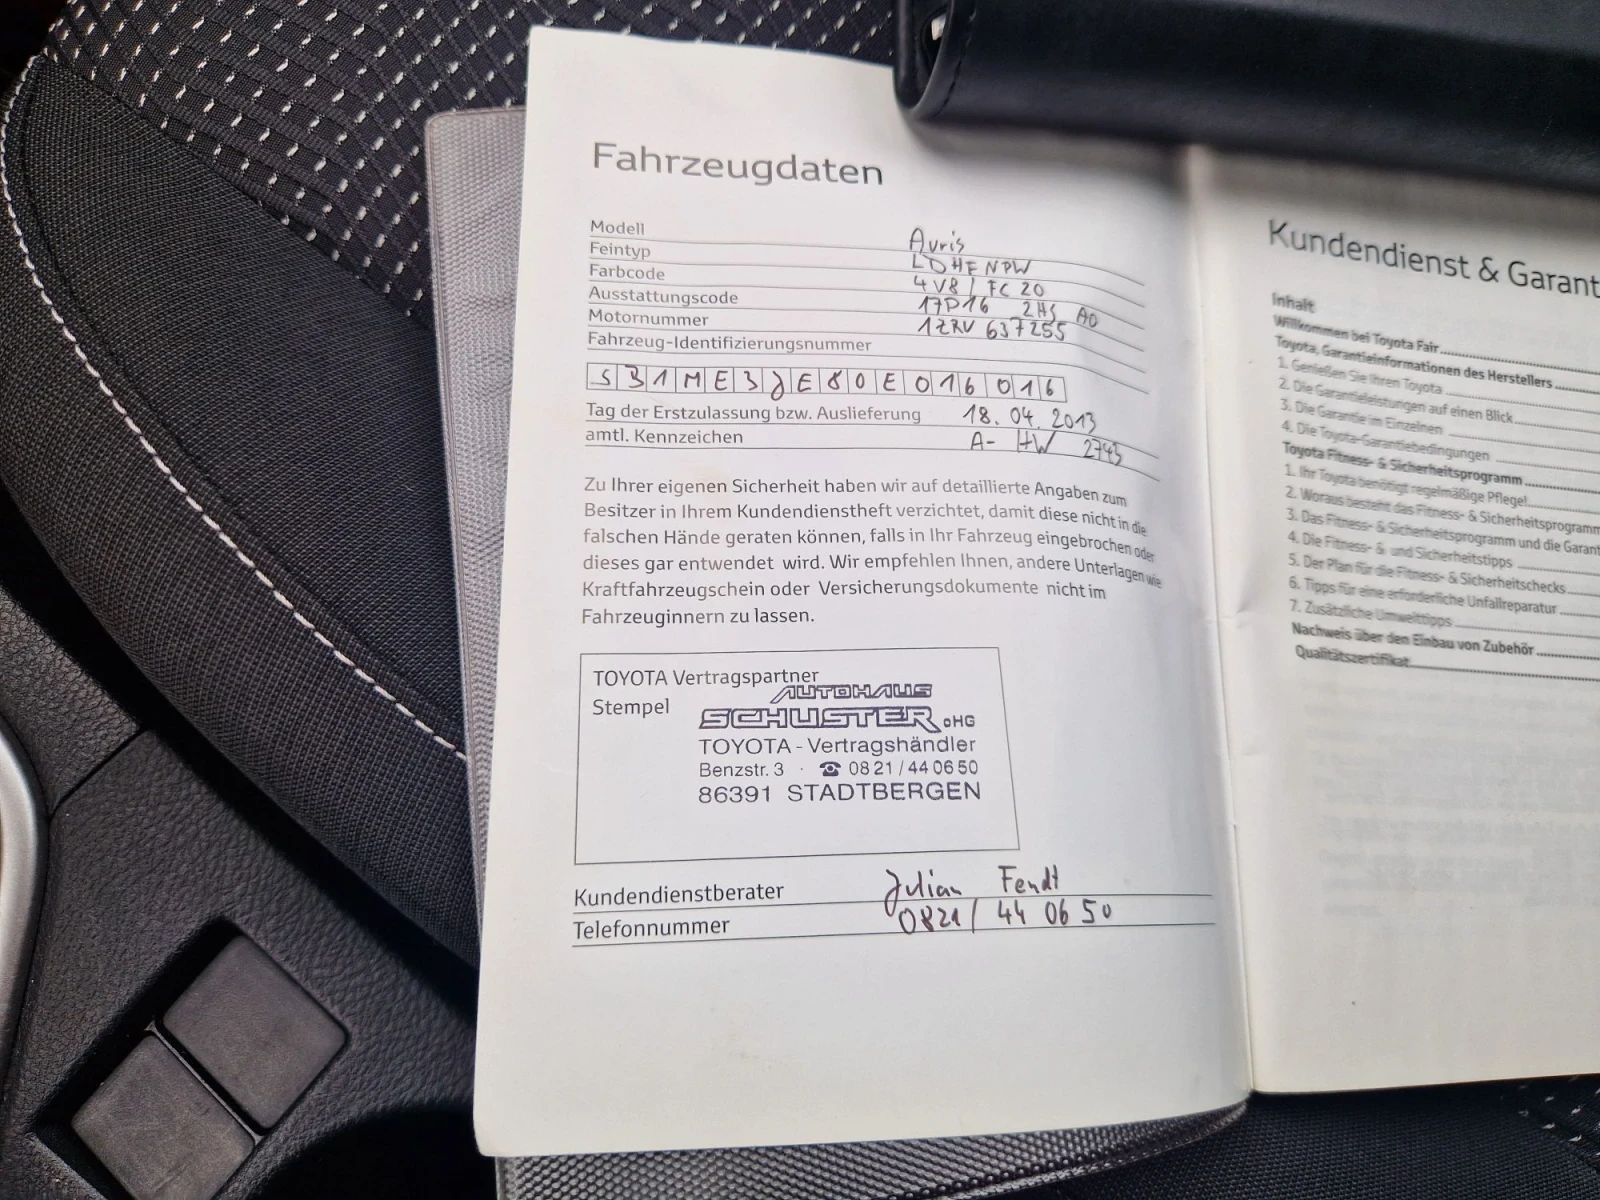 Fahrzeugdaten
Modell Auris
Feintyp LDHFNPW
Farbcode 4V8 / FC 20
Ausstattungscode 17P16 2HS A0
Motornummer 1ZRV 637255
Fahrzeug-Identifizierungsnummer
SB1ME3JE80E016016
Tag der Erstzulassung bzw. Auslieferung 18.04.2013
amtl. Kennzeichen A- HW 2743
Zu Ihrer eigenen Sicherheit haben wir auf detaillierte Angaben zum
Besitzer in Ihrem Kundendienstheft verzichtet, damit diese nicht in die
falschen Hände geraten können, falls in Ihr Fahrzeug eingebrochen oder
dieses gar entwendet wird. Wir empfehlen Ihnen, andere Unterlagen wie
Kraftfahrzeugschein oder Versicherungsdokumente nicht im
Fahrzeuginnern zu lassen.
TOYOTA Vertragspartner
Stempel
AUTOHAUS
SCHUSTER oHG
TOYOTA - Vertragshändler
Benzstr. 3 · ☎ 0821/440650
86391 STADTBERGEN
Kundendienstberater Julian Fendt
Telefonnummer 0821/ 44 06 50
Kundendienst & Garant
Inhalt
Willkommen bei Toyota Fair
Toyota, Garantieinformationen des Herstellers
1. Genießen Sie Ihren Toyota
2. Die Garantieleistungen auf einen Blick
3. Die Garantie im Einzelnen
4. Die Toyota-Garantiebedingungen
Toyota Fitness- & Sicherheitsprogramm
1. Ihr Toyota benötigt regelmäßige Pflege!
2. Woraus besteht das Fitness- & Sicherheitsprogramm
3. Das Fitness- & Sicherheitsprogramm und die Garant
4. Die Fitness- & und Sicherheitstipps
5. Der Plan für die Fitness- & Sicherheitschecks
6. Tipps für eine erforderliche Unfallreparatur
7. Zusätzliche Umwelttipps
Nachweis über den Einbau von Zubehör
Qualitätszertifikat